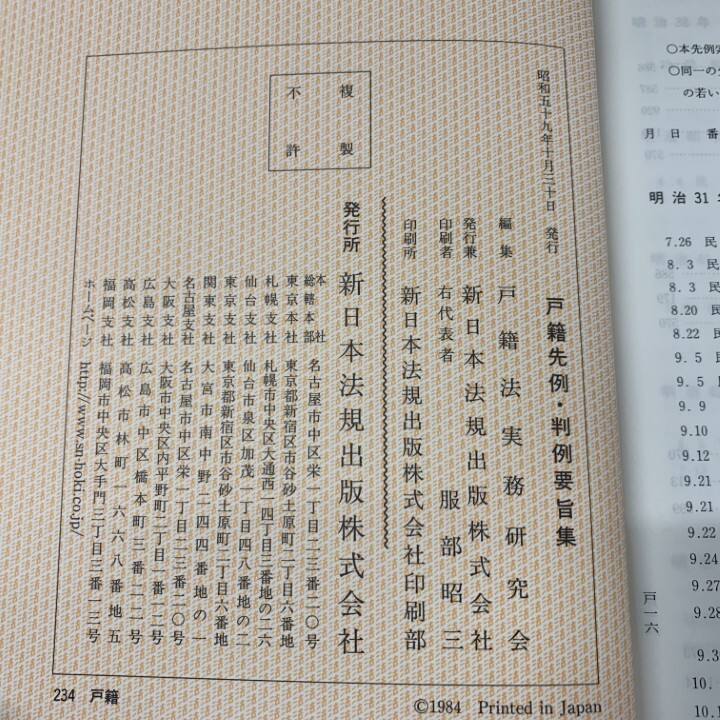 昭和五十九年十月三十日　発行
戸籍先例・判例要旨集
編集　戸籍法実務研究会
発行兼　新日本法規出版株式会社
印刷者　右代表者　服部昭三
印刷所　新日本法規出版株式会社印刷部
複製
不許
発行所　新日本法規出版株式会社
本社
総轄本部　名古屋市中区栄一丁目二三番二〇号
東京本社　東京都新宿区市谷砂土原町二丁目六番地
札幌支社　札幌市中央区大通西一四丁目三番地の二六
仙台支社　仙台市泉区加茂一丁目四八番地の二
東京支社　東京都新宿区市谷砂土原町二丁目六番地
関東支社　大宮市南中野二四四番地の一
名古屋支社　名古屋市中区栄一丁目二三番二〇号
大阪支社　大阪市中央区内平野町二丁目一番一二号
広島支社　広島市中区橋本町三番二二号
高松支社　高松市林町一六六八番地五
福岡支社　福岡市中央区大手門三丁目三番一三号
ホームページ　http://www.sn-hoki.co.jp/
234　戸籍
©1984　Printed in Japan
○本先例
○同一の
の若い
月日　番
明治31
7.26　民
8. 3　民
8. 3　民
8.20　民
8.22　民
9. 5　民
9. 5　民
9. 9
9.10
9.12
9.21
9.21
9.22
9.24
9.27
9.28
戸一六